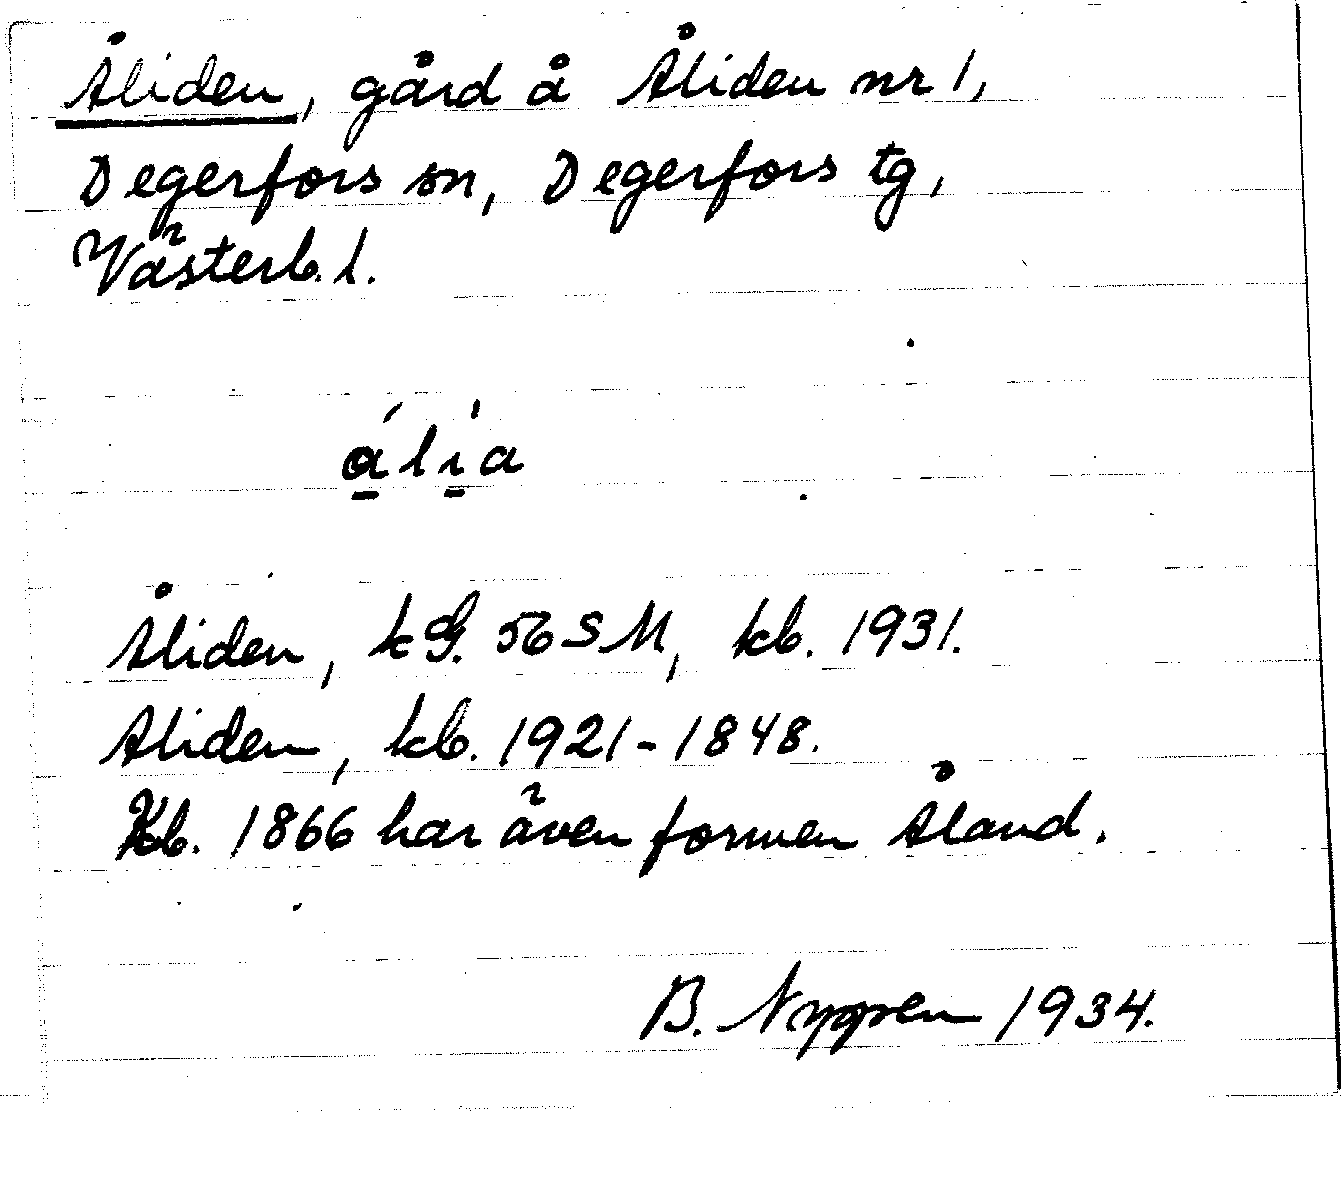 Åliden, gård å Åliden nr 1,
Degerfors sn, Degerfors tg,
Västerb. l.
Åliden, kG. 56 SM, kb. 1931.
Aliden, kb. 1921-1848.
Kb. 1866 har även formen Åland.
B. Nygren 1934.